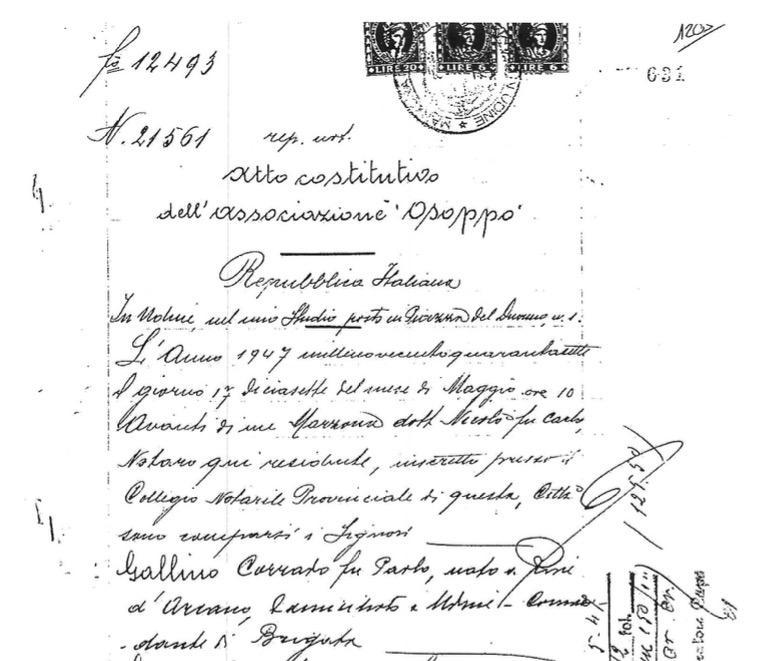 1200
631
LIRE 20 LIRE 6 LIRE 6
UDINE
fo 12493
N. 21561 rep. not.
Atto costitutivo
dell'associazione "Osoppo"
Repubblica Italiana
In Udine, nel mio Studio posto in Piazza del Duomo, n. 1.
L'Anno 1947 millenovecentoquarantasette
il giorno 17 diciasette del mese di Maggio ore 10
Avanti di me Marzona dott Nicolò fu Carlo,
Notaro qui residente, inscritto presso il
Collegio Notarile Provinciale di questa Città
sono comparsi i Signori
Gallino Corrado fu Carlo, nato a Rive
d'Arcano, domiciliato a Udine - Coman
-dante di Brigata